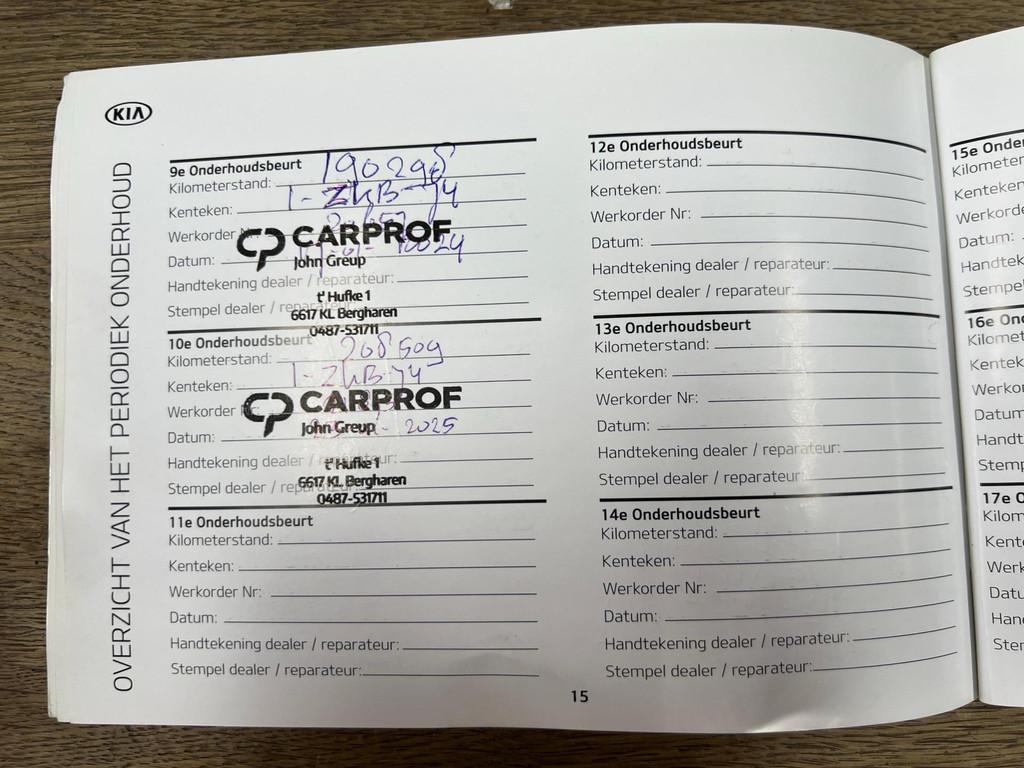 KIA
OVERZICHT VAN HET PERIODIEK ONDERHOUD
9e Onderhoudsbeurt
Kilometerstand: 190298
Kenteken: 1-ZKB-74
Werkorder
Datum: 2024
Handtekening dealer / reparateur:
Stempel dealer / reparateur:
CP CARPROF
John Greup
t' Hufke 1
6617 KL Bergharen
0487-531711
10e Onderhoudsbeurt
Kilometerstand: 208509
Kenteken: 1-ZKB-74
Werkorder
Datum: 2025
Handtekening dealer / reparateur:
Stempel dealer / reparateur:
CP CARPROF
John Greup
t' Hufke 1
6617 KL Bergharen
0487-531711
11e Onderhoudsbeurt
Kilometerstand:
Kenteken:
Werkorder Nr:
Datum:
Handtekening dealer / reparateur:
Stempel dealer / reparateur:
12e Onderhoudsbeurt
Kilometerstand:
Kenteken:
Werkorder Nr:
Datum:
Handtekening dealer / reparateur:
Stempel dealer / reparateur:
13e Onderhoudsbeurt
Kilometerstand:
Kenteken:
Werkorder Nr:
Datum:
Handtekening dealer / reparateur:
Stempel dealer / reparateur:
14e Onderhoudsbeurt
Kilometerstand:
Kenteken:
Werkorder Nr:
Datum:
Handtekening dealer / reparateur:
Stempel dealer / reparateur:
15
15e Onder
Kilometer
Kenteken
Werkorde
Datum:
Handteke
Stempel
16e On
Kilomet
Kentek
Werkor
Datum
Handt
Stemp
17e O
Kilom
Kent
Werk
Datu
Han
Ster